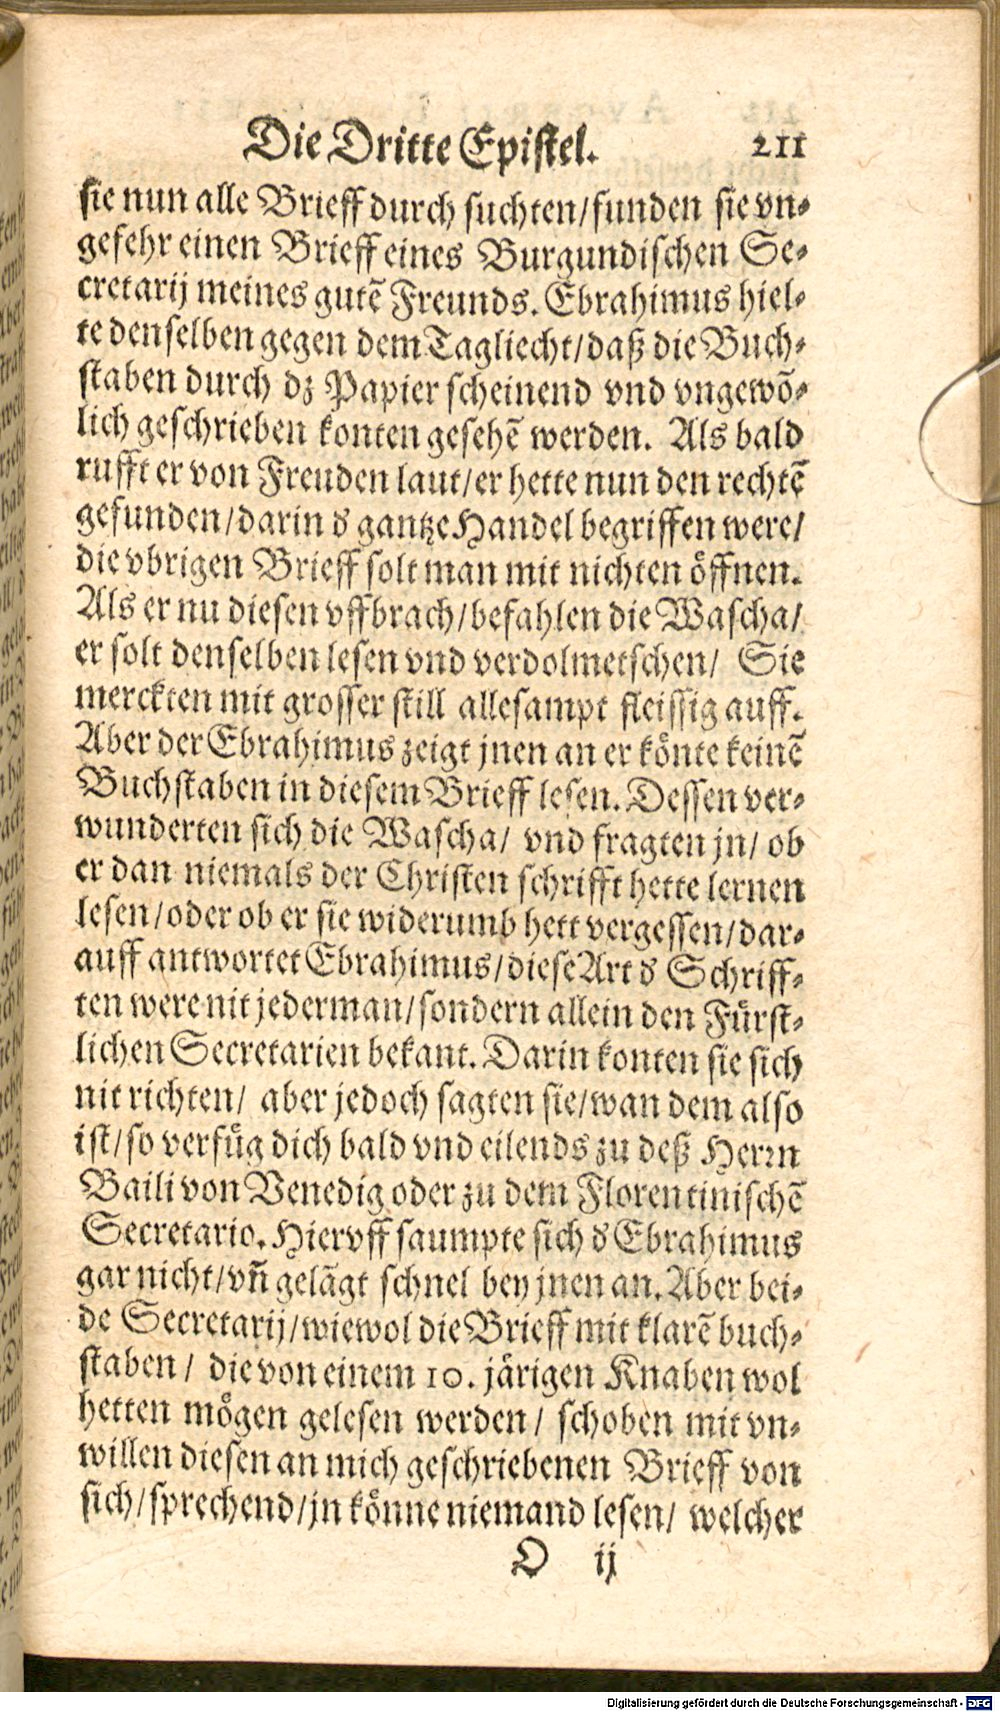 Die Dritte Epistel. 211
sie nun alle Brieff durch suchten/funden sie vn⸗
gefehr einen Brieff eines Burgundischen Se⸗
cretarij meines gutẽ Freunds. Ebrahimus hiel⸗
te denselben gegen dem Tagliecht/daß die Buch⸗
staben durch dz Papier scheinend vnd vngewõ⸗
lich geschrieben konten gesehẽ werden. Als bald
rufft er von Freuden laut/er hette nun den rechtẽ
gefunden/darin d̕ gantze Handel begriffen were/
die vbrigen Brieff solt man mit nichten öffnen.
Als er nu diesen vffbrach/befahlen die Wascha/
er solt denselben lesen vnd verdolmetschen/ Sie
merckten mit grosser still allesampt fleissig auff.
Aber der Ebrahimus zeigt jnen an er könte keinẽ
Buchstaben in diesem Brieff lesen. Dessen ver⸗
wunderten sich die Wascha/ vnd fragten jn/ ob
er dan niemals der Christen schrifft hette lernen
lesen/oder ob er sie widerumb hett vergessen/dar⸗
auff antwortet Ebrahimus/diese Art d̕ Schriff⸗
ten were nit jederman/sondern allein den Fürst⸗
lichen Secretarien bekant. Darin konten sie sich
nit richten/ aber jedoch sagten sie/wan dem also
ist/so verfüg dich bald vnd eilends zu deß Herrn
Baili von Venedig oder zu dem Florentinischẽ
Secretario. Hiervff saumpte sich d̕ Ebrahimus
gar nicht/vñ gelãgt schnel bey jnen an. Aber bei⸗
de Secretarij/wiewol die Brieff mit klarẽ buch⸗
staben/ die von einem 10. järigen Knaben wol
hetten mögen gelesen werden/ schoben mit vn⸗
willen diesen an mich geschriebenen Brieff von
sich/sprechend/jn könne niemand lesen/ welcher
O ij
Digitalisierung gefördert durch die Deutsche Forschungsgemeinschaft - DFG